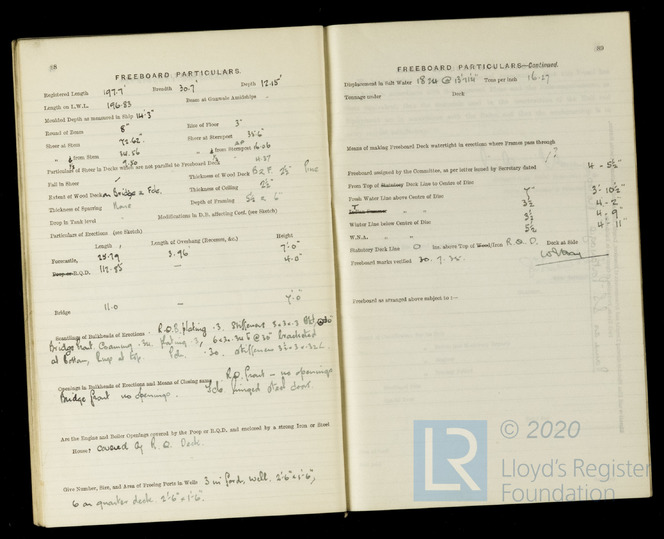 88
FREEBOARD PARTICULARS.
Registered Length 197.7' Breadth 30.7' Depth 12.15'
Length on L.W.L. 196.83 Beam at Gunwale Amidships
Moulded Depth as measured in Ship 14.3"
Round of Beam 8" Rise of Floor 3"
Sheer at Stem 72.62" Sheer at Sternpost 35.6"
" from Stem 34.56 " from Sternpost 16.06
7.80 4.37
Particulars of Sheer in Decks which are not parallel to Freeboard Deck
Fall in Sheer Thickness of Wood Deck B & F. 2½" Pine
Extent of Wood Deck on Bridge & Fcle. Thickness of Ceiling 2½"
Thickness of Sparring None Depth of Framing 5½ x 6"
Drop in Tank level Modifications in D.B. affecting Cert. (see Sketch)
Particulars of Erections (see Sketch)
Length Length of Overhang (Recesses, &c.) Height
Forecastle, 25.79 3.96 7'.0"
Poop or R.Q.D. 117.83 — 4'.0"
Bridge 11.0 — 7'.0"
Scantlings of Bulkheads of Erections R.Q.D. plating .3. Stiffeners 3x3x.3
Bridge front. Coaming .34. Plating .3, @ 30" bracketed
at bottom, Fcle. .30. stiffeners
Openings in Bulkheads of Erections and Means of Closing same R.Q. front – no openings
Bridge front no openings. Fcle. hinged steel door.
Are the Engine and Boiler Openings covered by the Poop or R.Q.D. and enclosed by a strong Iron or Steel
House? Covered by R. Q. Deck.
Give Number, Size, and Area of Freeing Ports in Wells 3 in ford. well. 2'.6" x 1'.6",
6 on quarter deck. 2'.6" x 1'.6".
89
FREEBOARD PARTICULARS—Continued.
Displacement in Salt Water 1824 @ 13'.11½" Tons per inch 16.27
Tonnage under Deck
Means of making Freeboard Deck watertight in erections where Frames pass through
Freeboard assigned by the Committee, as per letter issued by Secretary dated
From Top of Statutory Deck Line to Centre of Disc 4 - 5½"
Fresh Water Line above Centre of Disc 7" 3'- 10½"
Indian Summer " " 3½ 4 - 2"
Winter Line below Centre of Disc 3½ 4 - 9"
W.N.A. " " 5½ 4 - 11"
Statutory Deck Line 0 ins. above Top of Wood/Iron R.Q.D. Deck at Side
Freeboard marks verified 30.7.35.
Freeboard as arranged above subject to:—
LR
© 2020
Lloyd's Register
Foundation